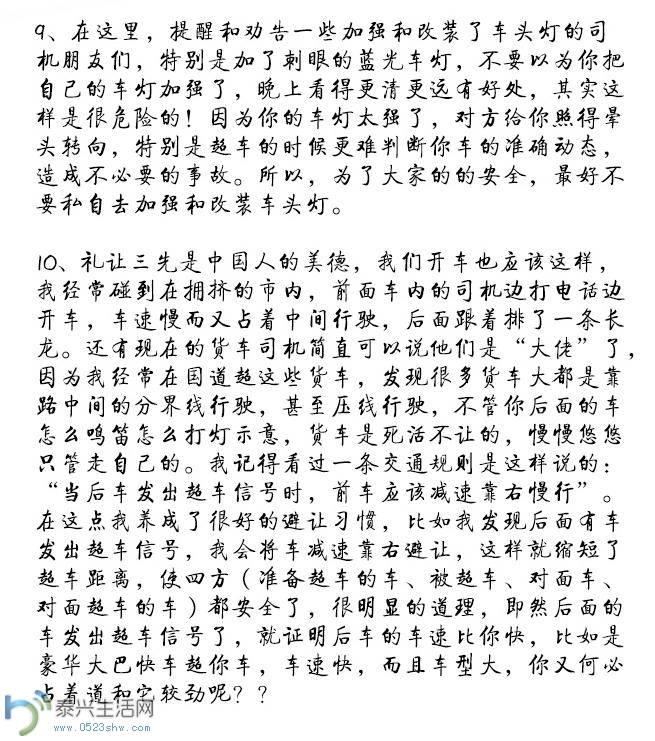 9、在这里，提醒和劝告一些加强和改装了车头灯的司
机朋友们，特别是加了刺眼的蓝光车灯，不要以为你把
自己的车灯加强了，晚上看得更清更远有好处，其实这
样是很危险的！因为你的车灯太强了，对方给你照得晕
头转向，特别是超车的时候更难判断你车的准确动态，
造成不必要的事故。所以，为了大家的的安全，最好不
要私自去加强和改装车头灯。
10、礼让三先是中国人的美德，我们开车也应该这样，
我经常碰到在拥挤的市内，前面车内的司机边打电话边
开车，车速慢而又占着中间行驶，后面跟着排了一条长
龙。还有现在的货车司机简直可以说他们是“大佬”了，
因为我经常在国道超这些货车，发现很多货车大都是靠
路中间的分界线行驶，甚至压线行驶，不管你后面的车
怎么鸣笛怎么打灯示意，货车是死活不让的，慢慢悠悠
只管走自己的。我记得看过一条交通规则是这样说的：
“当后车发出超车信号时，前车应该减速靠右慢行”。
在这点我养成了很好的避让习惯，比如我发现后面有车
发出超车信号，我会将车减速靠右避让，这样就缩短了
超车距离，使四方（准备超车的车、被超车、对面车、
对面超车的车）都安全了，很明显的道理，即然后面的
车发出超车信号了，就证明后车的车速比你快，比如是
豪华大巴快车超你车，车速快，而且车型大，你又何必
占着道和它较劲呢？？
泰兴生活网
www.0523shw.com